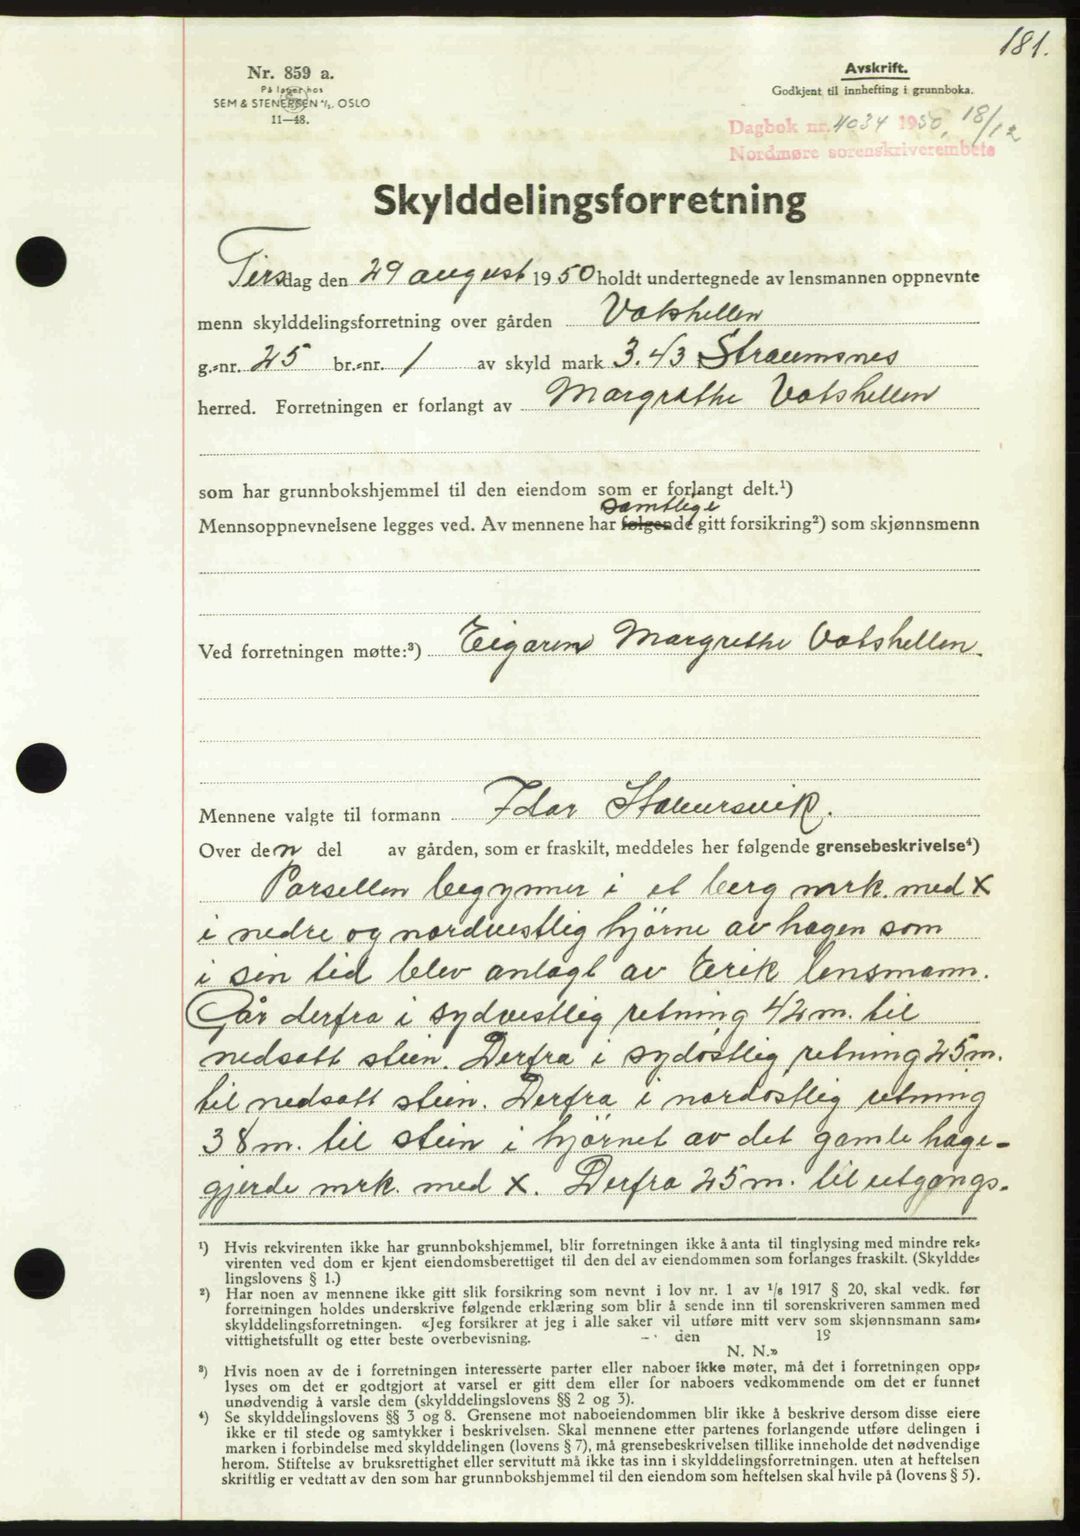 181.
Nr. 859 a.
På lager hos
SEM & STENERSEN A/S, OSLO
11—48.
Avskrift.
Godkjent til innhefting i grunnboka.
Dagbok nr. 4034 1950, 18/12
Nordmøre sorenskriverembete
Skylddelingsforretning
Tirsdag den 29 august 1950 holdt undertegnede av lensmannen oppnevnte
menn skylddelingsforretning over gården Vatshellen
g.-nr. 25 br.-nr. 1 av skyld mark 3.43 Straumsnes
herred. Forretningen er forlangt av Margrethe Vatshellen
som har grunnbokshjemmel til den eiendom som er forlangt delt.¹)
samtlige
Mennsoppnevnelsene legges ved. Av mennene har følgende gitt forsikring²) som skjønnsmenn
Ved forretningen møtte:³) Eigaren Margrethe Vatshellen.
Mennene valgte til formann Idar Stavnesvik.
Over den del av gården, som er fraskilt, meddeles her følgende grensebeskrivelse⁴)
Parsellen begynner i et berg mrk. med X
i nedre og nordvestlig hjörne av hagen som
i sin tid blev anlagt av Erik lensmann.
Går derfra i sydvestlig retning 42 m. til
nedsatt stein. Derfra i sydöstlig retning 25 m.
til nedsatt stein. Derfra i nordöstlig retning
38 m. til stein i hjörnet av det gamle hage-
gjerde mrk. med X. Derfra 25 m. til utgangs-
¹) Hvis rekvirenten ikke har grunnbokshjemmel, blir forretningen ikke å anta til tinglysing med mindre rek-
virenten ved dom er kjent eiendomsberettiget til den del av eiendommen som forlanges fraskilt. (Skyldde-
lingslovens § 1.)
²) Har noen av mennene ikke gitt slik forsikring som nevnt i lov nr. 1 av 1/6 1917 § 20, skal vedk. før
forretningen holdes underskrive følgende erklæring som blir å sende inn til sorenskriveren sammen med
skylddelingsforretningen. «Jeg forsikrer at jeg i alle saker vil utføre mitt verv som skjønnsmann sam-
vittighetsfullt og etter beste overbevisning. den 19
N. N.»
³) Hvis noen av de i forretningen interesserte parter eller naboer ikke møter, må det i forretningen opp-
lyses om det er godtgjort at varsel er gitt dem eller for naboers vedkommende om det er funnet
unødvendig å varsle dem (skylddelingslovens §§ 2 og 3).
⁴) Se skylddelingslovens §§ 3 og 8. Grensene mot naboeiendommen blir ikke å beskrive dersom disse eiere
ikke er til stede og samtykker i beskrivelsen. Skal mennene etter partenes forlangende utføre delingen i
marken i forbindelse med skylddelingen (lovens § 7), må grensebeskrivelsen tillike inneholde det nødvendige
herom. Stiftelse av bruksrettighet eller servitutt må ikke tas inn i skylddelingsforretningen, uten at heftelsen
skriftlig er vedtatt av den som har grunnbokshjemmel til den eiendom som heftelsen skal hvile på (lovens § 5).